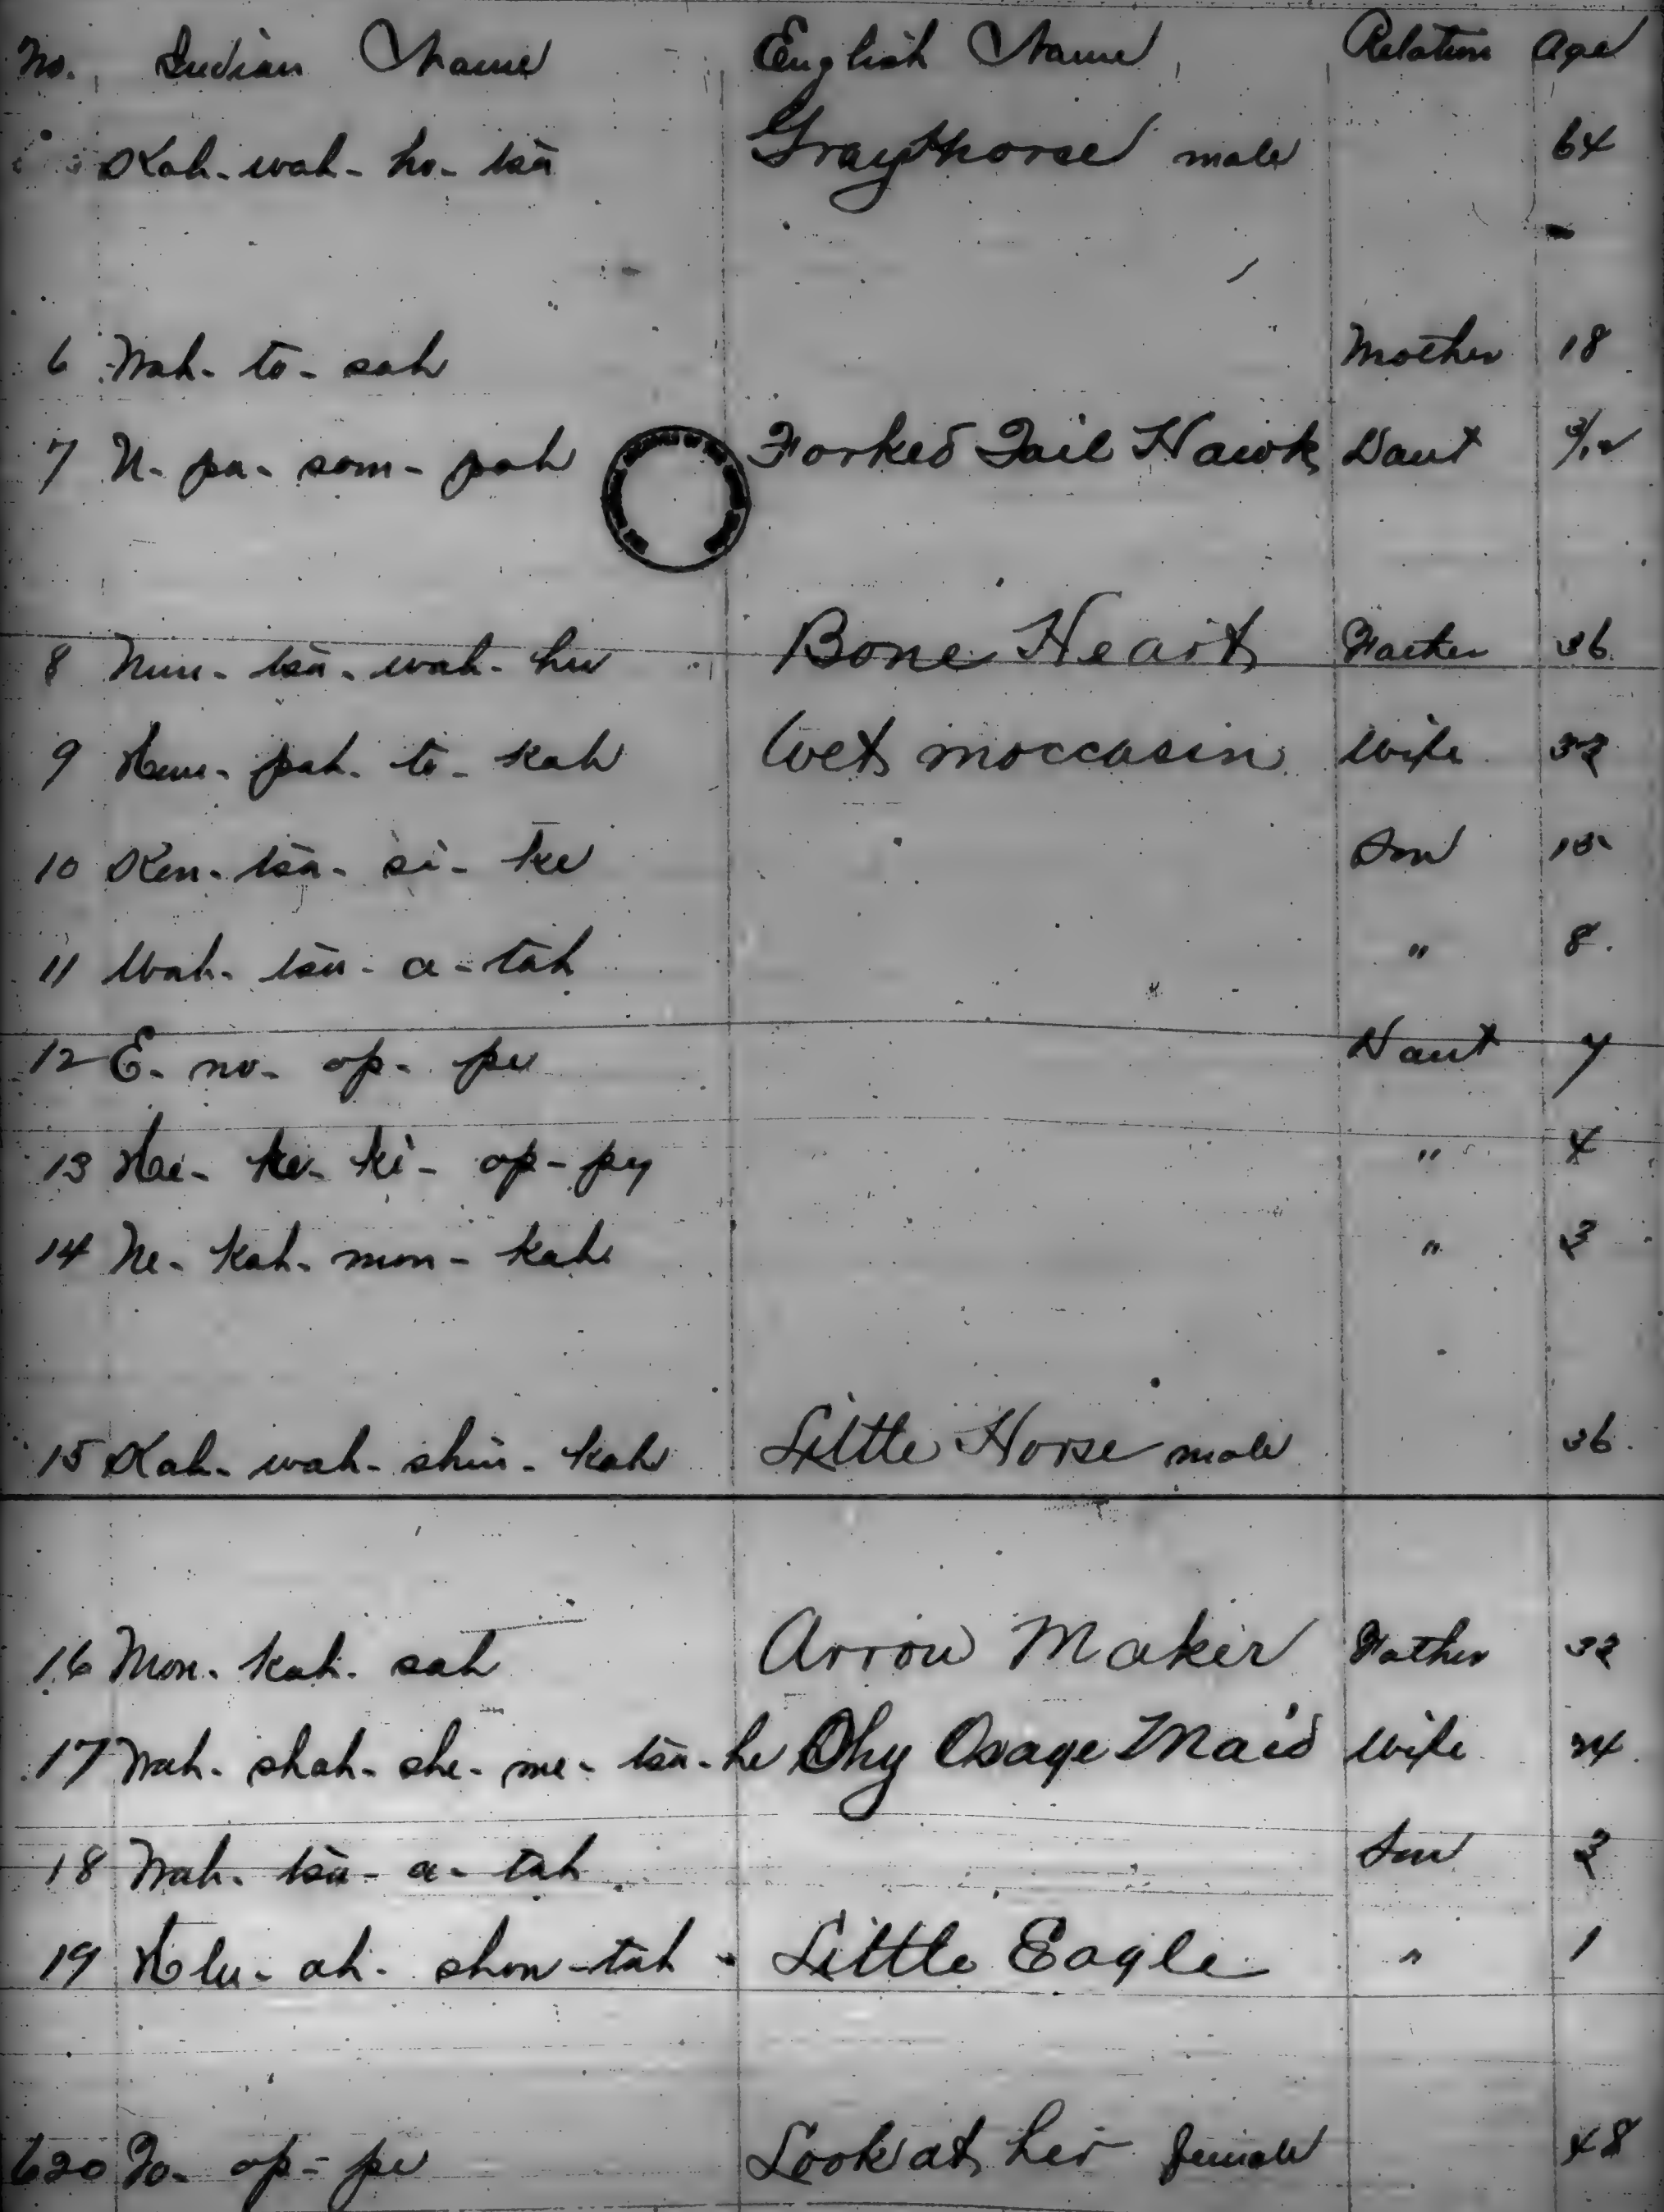 No. Indian Name English Name Relation Age
Kah-wah-ho-tsa Grayhorse male 64
6 Wah-to-sah Mother 18
7 N-pa-som-pah Forked Tail Hawk Daut 3/12
8 Nun-tsa-wah-hu Bone Heart Father 36
9 Hum-pah-to-kah Wet moccasin Wife 32
10 Ken-tsa-si-ke Son 15
11 Wah-tsa-a-tah " 8
12 E-no-op-pe Daut 7
13 Ke-ki-op-py " 4
14 Ne-kah-mon-kah " 3
15 Kah-wah-shin-kah Little Horse male 36
16 Mon-kah-sah Arrow Maker Father 32
17 Wah-shah-she-me-tsa-he Ohy Osage Maid Wife 24
18 Wah-tsa-a-tah Son 3
19 Hlu-ah-shon-tah Little Eagle " 1
620 To-op-pe Look at her female 48